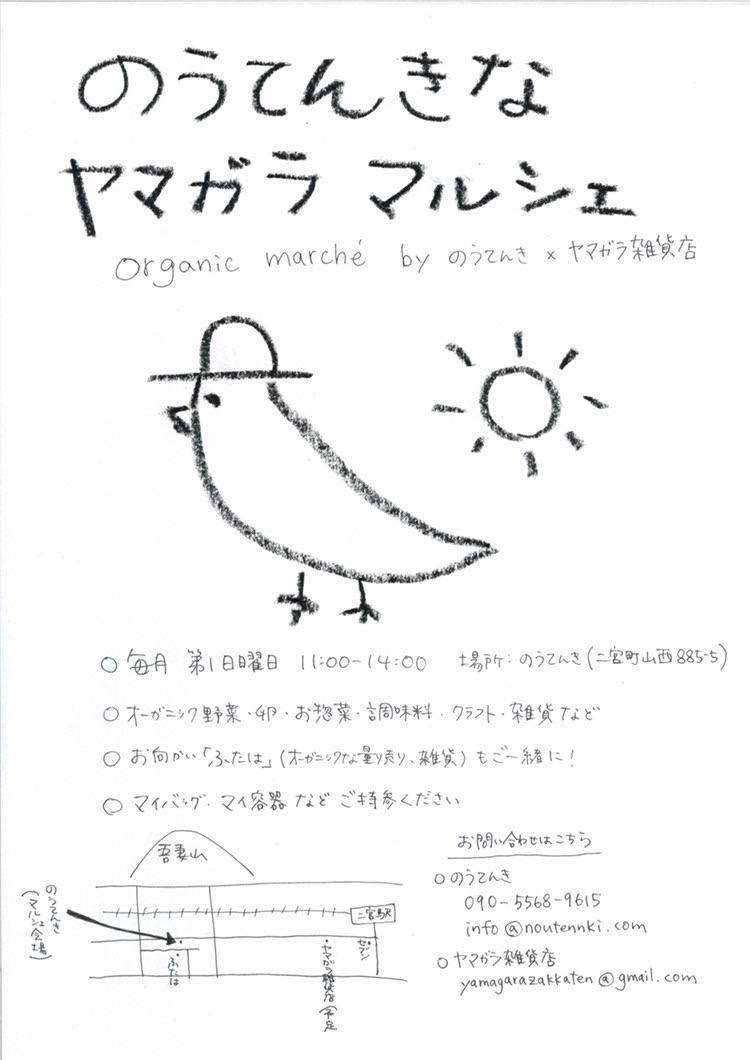 のうてんきな
ヤマガラ マルシェ
organic marché by のうてんき × ヤマガラ雑貨店
○ 毎月 第1日曜日 11:00-14:00 場所:のうてんき(二宮町山西885-5)
○ オーガニック野菜・卵・お惣菜・調味料・クラフト・雑貨 など
○ お向かい「ふたは」(オーガニックな量り売り、雑貨)もご一緒に!
○ マイバッグ・マイ容器 など ご持参ください
吾妻山
二宮駅
のうてんき
(マルシェ会場)
ふたは
ヤマガラ雑貨店(予定)
セブン
お問い合わせはこちら
○ のうてんき
090-5568-9615
info@noutennki.com
○ ヤマガラ雑貨店
yamagarazakkaten@gmail.com